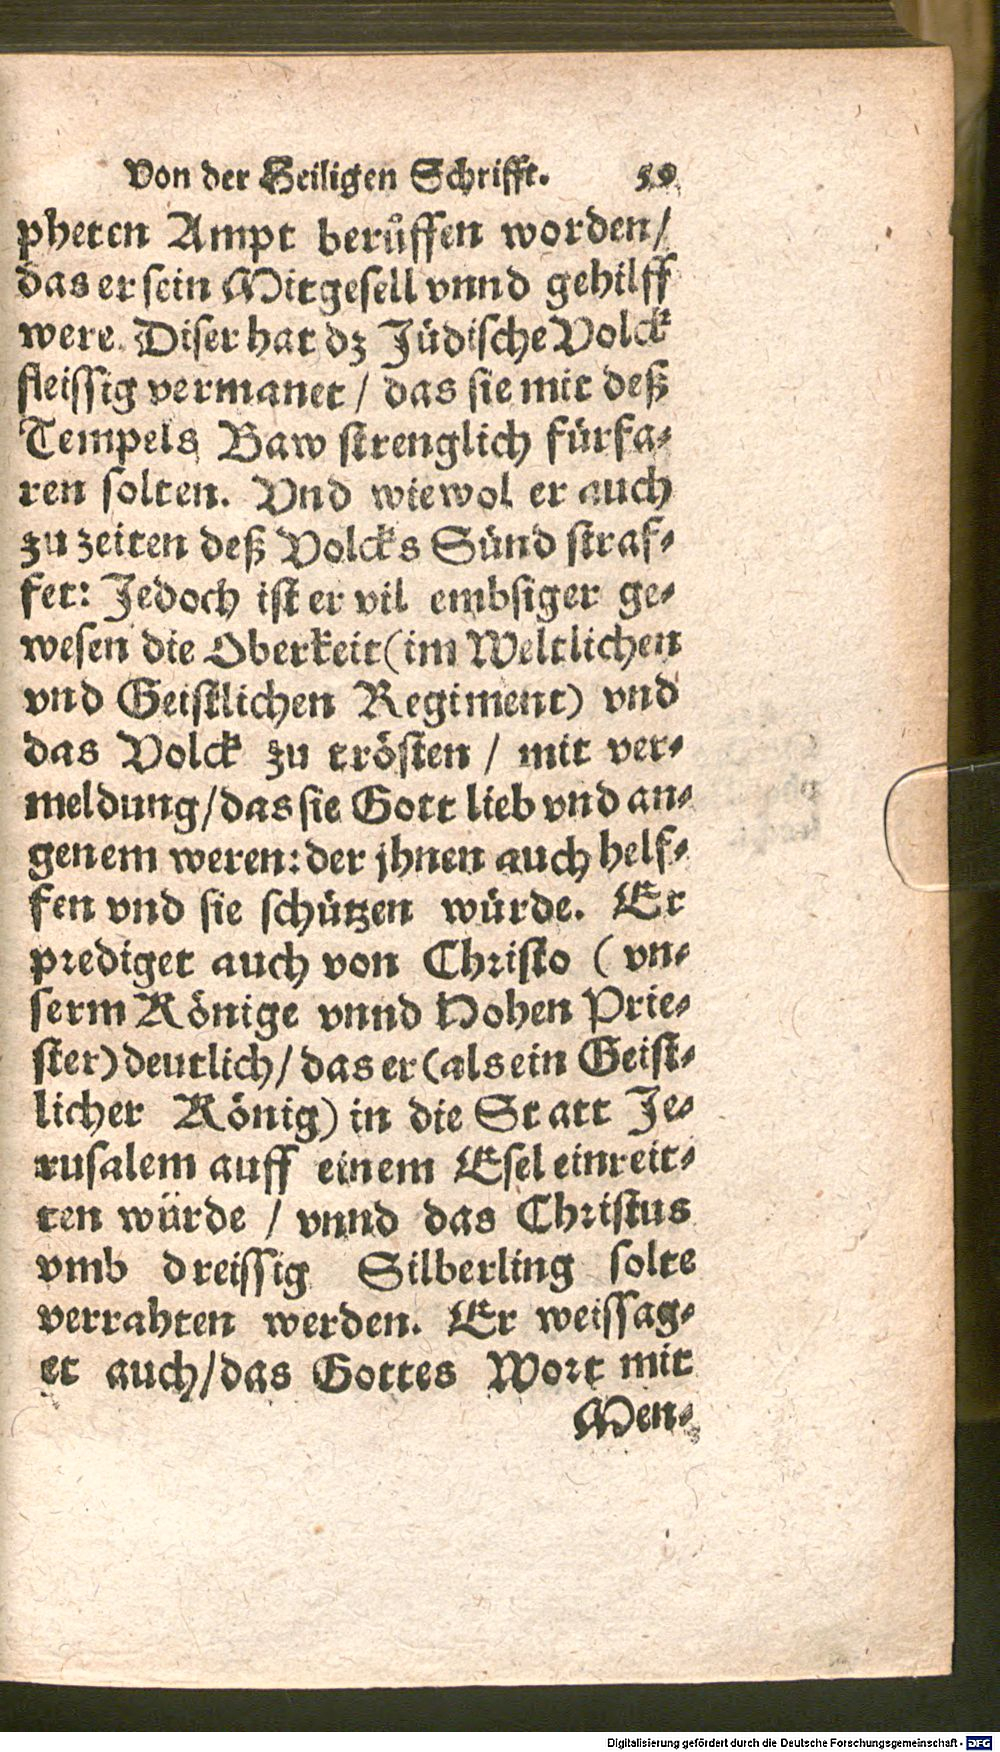 Von der Heiligen Schrifft. 59
pheten Ampt berůffen worden/
das er sein Mitgesell vnnd gehilff
were. Diser hat dz Jüdische Volck
fleissig vermanet / das sie mit deß
Tempels Baw strenglich fürfa-
ren solten. Vnd wiewol er auch
zu zeiten deß Volcks Sünd straf-
fet: Jedoch ist er vil embsiger ge-
wesen die Oberkeit (im Weltlichen
vnd Geistlichen Regiment) vnd
das Volck zu trösten / mit ver-
meldung / das sie Gott lieb vnd an-
genem weren: der jhnen auch helf-
fen vnd sie schützen würde. Er
prediget auch von Christo (vn-
serm Könige vnnd Hohen Prie-
ster) deutlich / das er (als ein Geist-
licher König) in die Statt Je-
rusalem auff einem Esel einreit-
ten würde / vnnd das Christus
vmb dreissig Silberling solte
verrahten werden. Er weissag-
et auch / das Gottes Wort mit
Men-
Digitalisierung gefördert durch die Deutsche Forschungsgemeinschaft - DFG